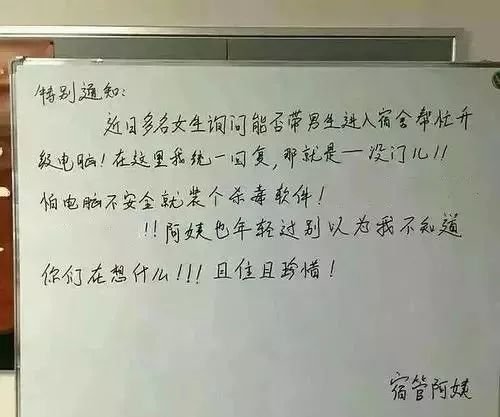 特别通知:
近日多名女生询问能否带男生进入宿舍帮忙升
级电脑!在这里我统一回复,那就是一没门儿!!
怕电脑不安全就装个杀毒软件!
!!阿姨也年轻过别以为我不知道
你们在想什么!!!且住且珍惜!
宿管阿姨